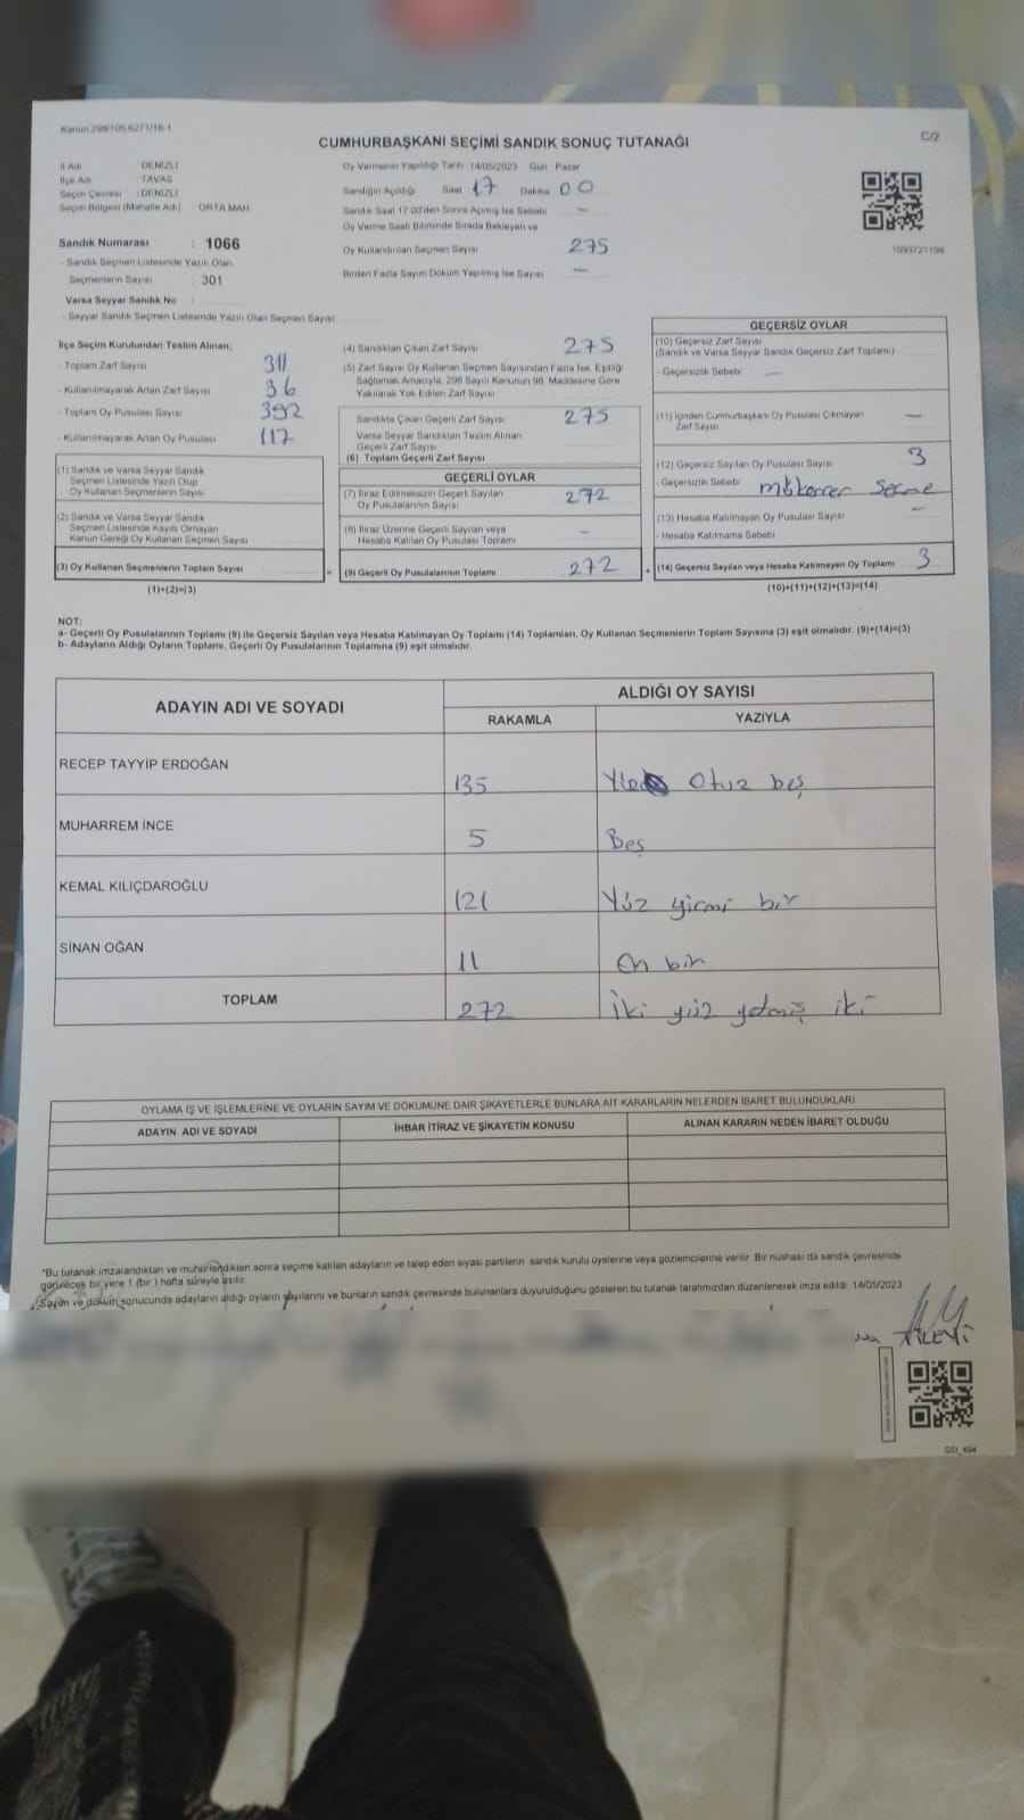 CUMHURBAŞKANI SEÇİMİ SANDIK SONUÇ TUTANAĞI
C/2
İl Adı DENİZLİ
İlçe Adı TAVAS
Seçim Çevresi : DENİZLİ
Seçim Bölgesi (Mahalle Adı) ORTA MAH
Sandık Numarası : 1066
- Sandık Seçmen Listesinde Yazılı Olan
Seçmenlerin Sayısı 301
Varsa Seyyar Sandık No :
- Seyyar Sandık Seçmen Listesinde Yazılı Olan Seçmen Sayısı
Oy Vermenin Yapıldığı Tarih 14/05/2023 Gün Pazar
Sandığın Açıldığı Saat 17 Dakika 00
Sandık Saat 17.00'den Sonra Açılmış İse Sebebi —
Oy Verme Saati Bitiminde Sırada Bekleyen ve
Oy Kullandırılan Seçmen Sayısı 275
Birden Fazla Sayım Döküm Yapılmış İse Sayısı —
İlçe Seçim Kurulundan Teslim Alınan;
- Toplam Zarf Sayısı 311
- Kullanılmayarak Artan Zarf Sayısı 36
- Toplam Oy Pusulası Sayısı 392
- Kullanılmayarak Artan Oy Pusulası 117
(1) Sandık ve Varsa Seyyar Sandık
Seçmen Listesinde Yazılı Olup
Oy Kullanan Seçmenlerin Sayısı
(2) Sandık ve Varsa Seyyar Sandık
Seçmen Listesinde Kayıtlı Olmayan
Kanun Gereği Oy Kullanan Seçmen Sayısı
(3) Oy Kullanan Seçmenlerin Toplam Sayısı
(1)+(2)=(3)
(4) Sandıktan Çıkan Zarf Sayısı 275
(5) Zarf Sayısı Oy Kullanan Seçmen Sayısından Fazla İse, Eşitliği
Sağlamak Amacıyla, 298 Sayılı Kanunun 98. Maddesine Göre
Yakılarak Yok Edilen Zarf Sayısı
Sandıkta Çıkan Geçerli Zarf Sayısı 275
Varsa Seyyar Sandıktan Teslim Alınan
Geçerli Zarf Sayısı
(6) Toplam Geçerli Zarf Sayısı
GEÇERLİ OYLAR
(7) İtiraz Edilmeksizin Geçerli Sayılan
Oy Pusulalarının Sayısı 272
(8) İtiraz Üzerine Geçerli Sayılan veya
Hesaba Katılan Oy Pusulası Toplamı —
(9) Geçerli Oy Pusulalarının Toplamı 272
GEÇERSİZ OYLAR
(10) Geçersiz Zarf Sayısı
(Sandık ve Varsa Seyyar Sandık Geçersiz Zarf Toplamı)
- Geçersizlik Sebebi —
(11) İçinden Cumhurbaşkanı Oy Pusulası Çıkmayan
Zarf Sayısı —
(12) Geçersiz Sayılan Oy Pusulası Sayısı 3
- Geçersizlik Sebebi mükerrer seçme
(13) Hesaba Katılmayan Oy Pusulası Sayısı —
- Hesaba Katılmama Sebebi
(14) Geçersiz Sayılan veya Hesaba Katılmayan Oy Toplamı 3
(10)+(11)+(12)+(13)=(14)
NOT:
a- Geçerli Oy Pusulalarının Toplamı (9) ile Geçersiz Sayılan veya Hesaba Katılmayan Oy Toplamı (14) Toplamları, Oy Kullanan Seçmenlerin Toplam Sayısına (3) eşit olmalıdır. (9)+(14)=(3)
b- Adayların Aldığı Oyların Toplamı, Geçerli Oy Pusulalarının Toplamına (9) eşit olmalıdır.
ADAYIN ADI VE SOYADI
ALDIĞI OY SAYISI
RAKAMLA YAZIYLA
RECEP TAYYİP ERDOĞAN 135 otuz beş
MUHARREM İNCE 5 Beş
KEMAL KILIÇDAROĞLU 121 Yüz yirmi bir
SİNAN OĞAN 11 On bir
TOPLAM 272 İki yüz yetmiş iki
OYLAMA İŞ VE İŞLEMLERİNE VE OYLARIN SAYIM VE DÖKÜMÜNE DAİR ŞİKAYETLERLE BUNLARA AİT KARARLARIN NELERDEN İBARET BULUNDUKLARI
ADAYIN ADI VE SOYADI
İHBAR İTİRAZ VE ŞİKAYETİN KONUSU
ALINAN KARARIN NEDEN İBARET OLDUĞU
*Bu tutanak imzalandıktan ve mühürlendikten sonra seçime katılan adayların ve talep eden siyasi partilerin sandık kurulu üyelerine veya gözlemcilerine verilir. Bir nüshası da sandık çevresinde
görülecek bir yere 1 (bir) hafta süreyle asılır.
Sayım ve döküm sonucunda adayların aldığı oyların sayılarını ve bunların sandık çevresinde bulunanlara duyurulduğunu gösteren bu tutanak tarafımızdan düzenlenerek imza edildi. 14/05/2023